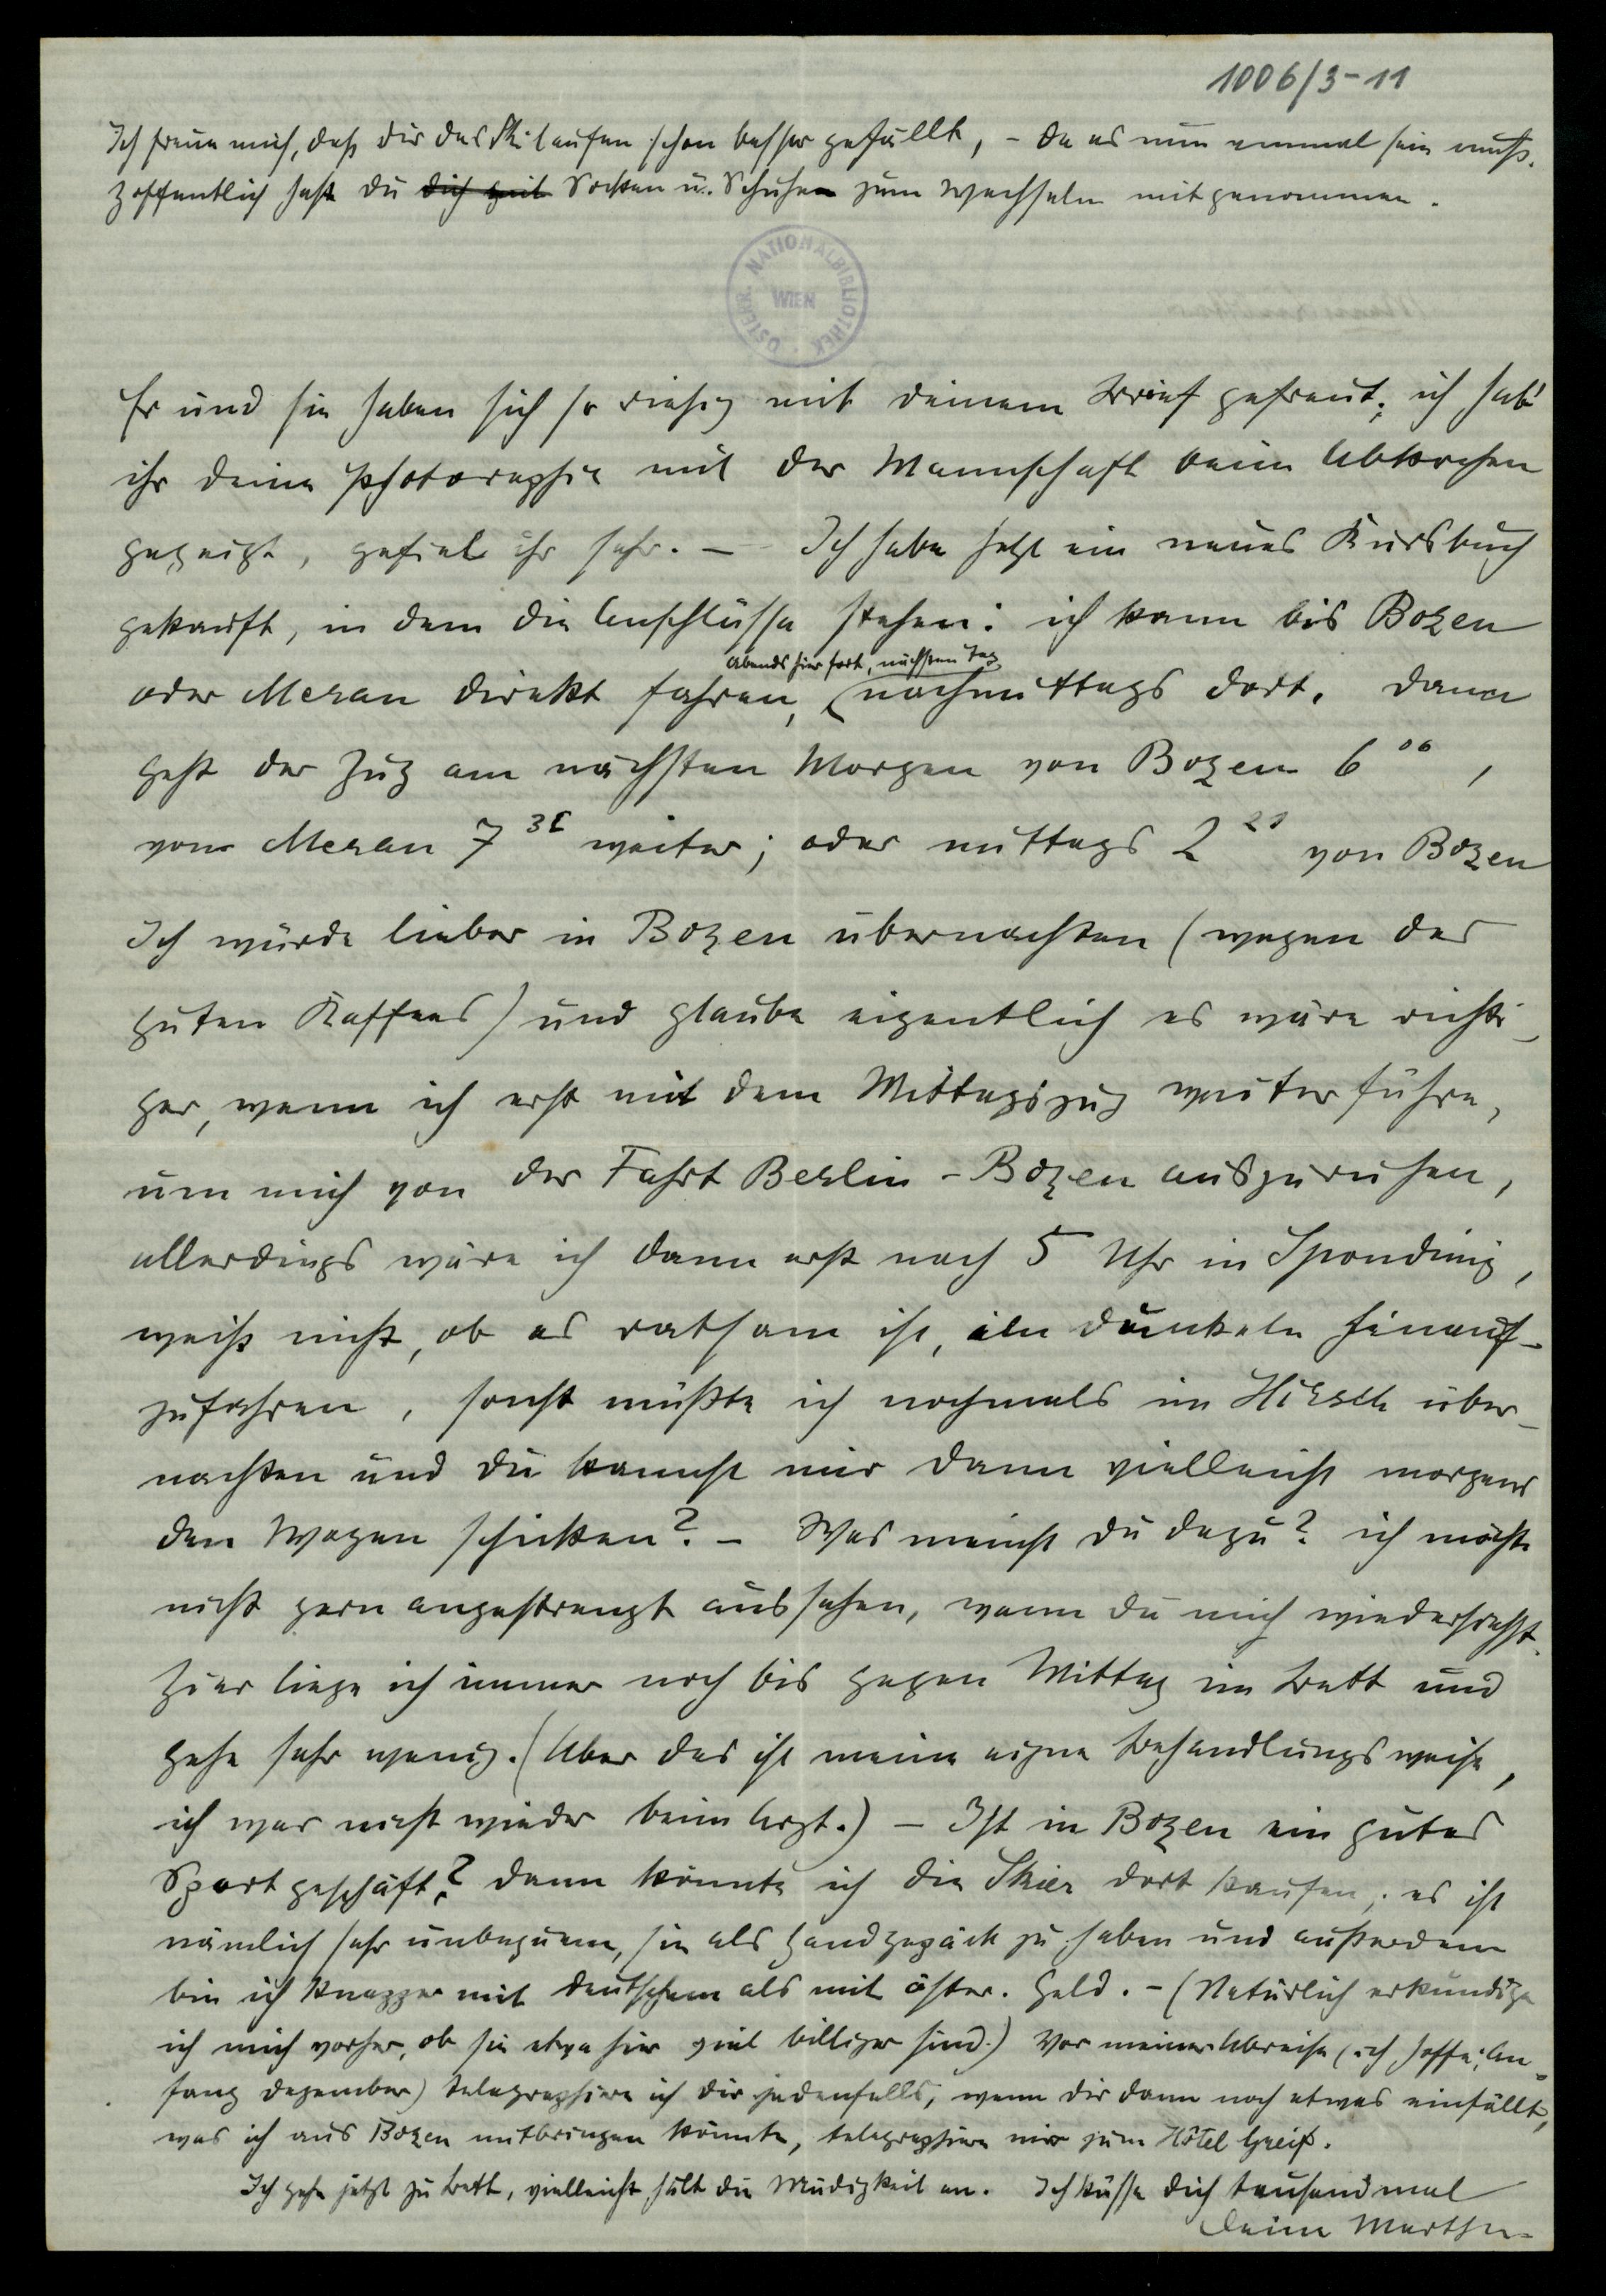 1006/3-11
Ich freue mich, daß dir das Skilaufen schon besser gefällt, – da es nun einmal sein muß.
Hoffentlich hast du dich mit Socken u. Schuhen zum Wechseln mitgenommen.
ÖSTERR. NATIONALBIBLIOTHEK WIEN
Er und sie haben sich so riesig mit deinem Brief gefreut; ich hab'
ihr deine Photographie mit der Mannschaft beim Abkochen
gezeigt, gefiel ihr sehr. – Ich habe jetzt ein neues Kursbuch
gekauft, in dem die Anschlüsse stehen: ich kann bis Bozen
abends hier fort, nächsten Tag
oder Meran direkt fahren, nachmittags dort. Dann
geht der Zug am nächsten Morgen von Bozen 6 06,
von Meran 7 weiter; oder mittags 2 21 von Bozen
Ich würde lieber in Bozen übernachten (wegen des
guten Kaffees) und glaube eigentlich es wäre richti-
ger, wenn ich erst mit dem Mittagszug weiterführe,
um mich von der Fahrt Berlin-Bozen auszuruhen,
allerdings wäre ich dann erst nach 5 Uhr in Spondinig,
weiß nicht, ob es ratsam ist, im dunkeln hinauf-
zufahren, sonst müßte ich nochmals im Hirsch über-
nachten und du kannst mir dann vielleicht morgens
den Wagen schicken? – Was meinst du dazu? ich möchte
nicht gern angestrengt aussehen, wenn du mich wiedersiehst.
Hier liege ich immer noch bis gegen Mittag im Bett und
gehe sehr wenig. (Aber das ist meine eigne Behandlungsweise,
ich war nicht wieder beim Arzt.) – Ist in Bozen ein gutes
Sportgeschäft? Dann könnte ich die Skier dort kaufen; es ist
nämlich sehr unbequem, sie als Handgepäck zu haben und außerdem
bin ich knapper mit deutschem als mit öster. Geld. – (Natürlich erkundige
ich mich vorher, ob sie etwa hier viel billiger sind.) Vor meiner Abreise (ich hoffe: An-
fang Dezember) telegraphiere ich dir jedenfalls, wenn dir dann noch etwas einfällt,
was ich aus Bozen mitbringen könnte, telegraphiere mir zum Hôtel Greif.
Ich gehe jetzt zu Bett, vielleicht hält die Müdigkeit an. Ich küsse dich tausendmal
Deine Martha